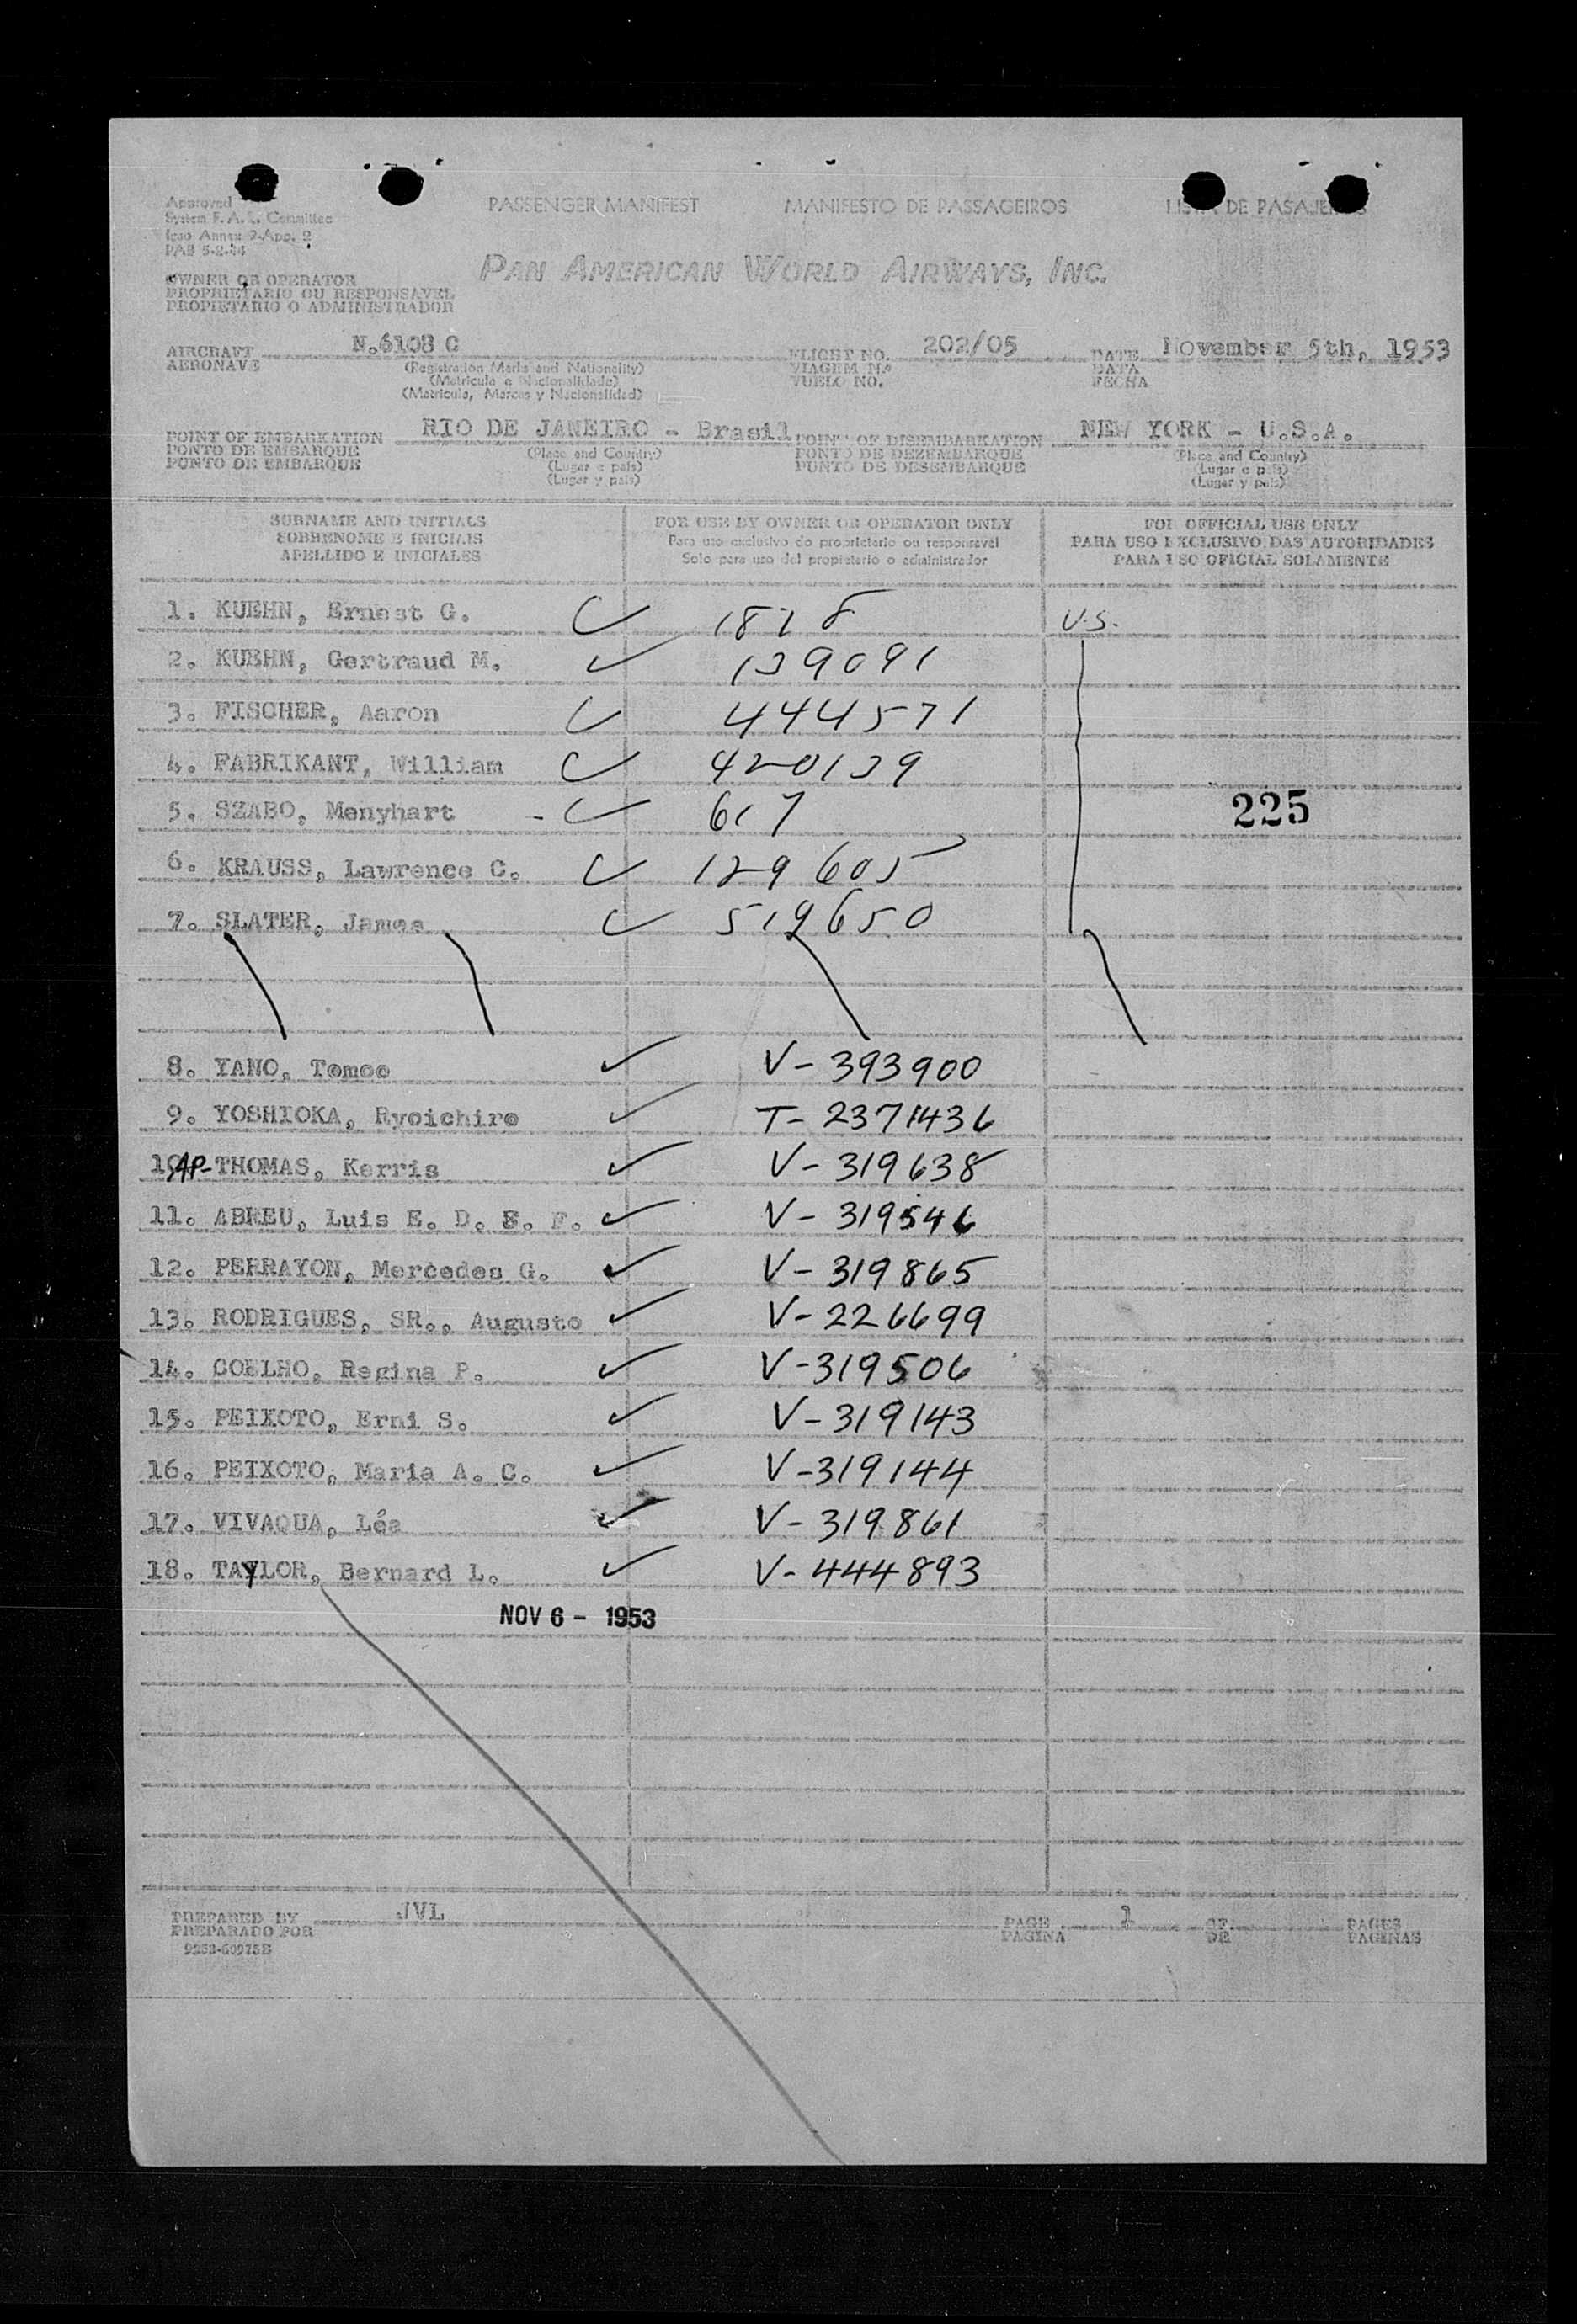 Approved
System F. A. L. Committee
Icao Annex 9-App. 2
PAB 5-2-44
PASSENGER MANIFEST MANIFESTO DE PASSAGEIROS LISTA DE PASAJEROS
PAN AMERICAN WORLD AIRWAYS, INC.
OWNER OR OPERATOR
PROPRIETARIO OU RESPONSAVEL
PROPIETARIO O ADMINISTRADOR
AIRCRAFT N.6108 C FLIGHT NO. 202/05 DATE November 5th, 1953
AERONAVE (Registration Marks and Nationality) VIAGEM N.º DATA
(Matricula e Nacionalidade) VUELO NO. FECHA
(Matricula, Marcas y Nacionalidad)
POINT OF EMBARKATION RIO DE JANEIRO - Brasil POINT OF DISEMBARKATION NEW YORK - U.S.A.
PONTO DE EMBARQUE (Place and Country) PONTO DE DEZEMBARQUE (Place and Country)
PUNTO DE EMBARQUE (Lugar e pais) PUNTO DE DESEMBARQUE (Lugar e pais)
(Lugar y pais) (Lugar y pais)
SURNAME AND INITIALS FOR USE BY OWNER OR OPERATOR ONLY FOR OFFICIAL USE ONLY
SOBRENOME E INICIAIS Para uso exclusivo do proprietario ou responsavel PARA USO EXCLUSIVO DAS AUTORIDADES
APELLIDO E INICIALES Solo para uso del propietario o administrador PARA USO OFICIAL SOLAMENTE
1. KUEHN, Ernest G. U.S.
2. KUEHN, Gertraud M. 139091
3. FISCHER, Aaron 444571
4. FABRIKANT, William 420139
5. SZABO, Menyhart 617 225
6. KRAUSS, Lawrence C. 129605
7. SLATER, James 519650
8. YANO, Tomoo V-393900
9. YOSHIOKA, Ryoichiro T-2371436
10. AP-THOMAS, Kerris V-319638
11. ABREU, Luis E. D. S. F. V-319546
12. PERRAYON, Mercedes G. V-319865
13. RODRIGUES, SR., Augusto V-226699
14. COELHO, Regina P. V-319506
15. PEIXOTO, Erni S. V-319143
16. PEIXOTO, Maria A. C. V-319144
17. VIVAQUA, Léa V-319861
18. TAYLOR, Bernard L. V-444893
NOV 6 - 1953
PREPARED BY JVL PAGE 1 OF PAGES
PREPARADO POR PAGINA DE PAGINAS